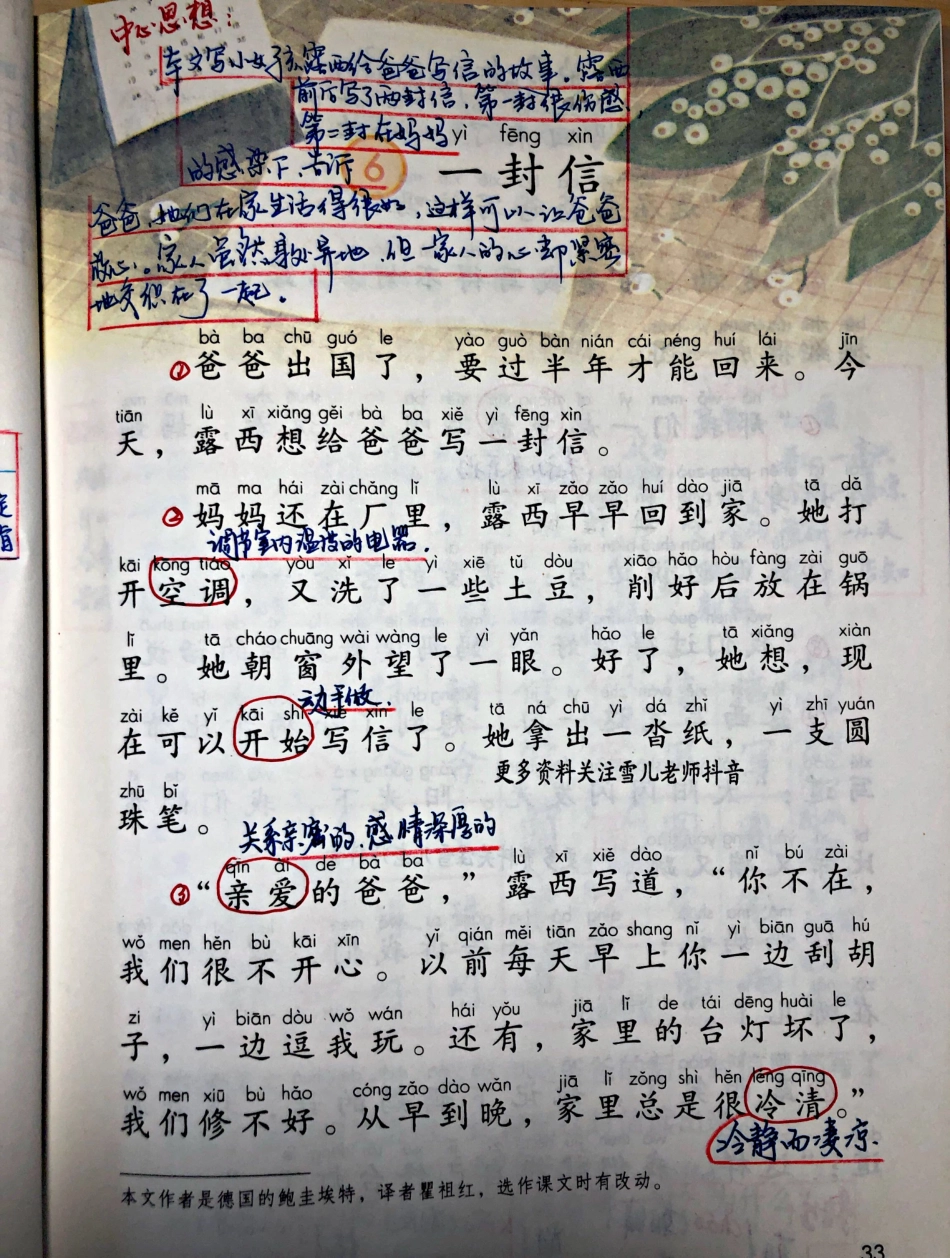 中心思想：
本文写小女孩露西给爸爸写信的故事。露西
前后写了两封信，第一封很伤感，
第二封在妈妈
的感染下，告诉
爸爸，她们在家生活得很好，这样可以让爸爸
放心。家人虽然身处异地，但一家人的心却紧密
地交织在了一起。
yì fēng xìn
6 一封信
bà ba chū guó le yào guò bàn nián cái néng huí lái jīn
①爸爸出国了，要过半年才能回来。今
tiān lù xī xiǎng gěi bà ba xiě yì fēng xìn
天，露西想给爸爸写一封信。
mā ma hái zài chǎng lǐ lù xī zǎo zǎo huí dào jiā tā dǎ
②妈妈还在厂里，露西早早回到家。她打
调节室内温度的电器。
kāi kōng tiáo yòu xǐ le yì xiē tǔ dòu xiāo hǎo hòu fàng zài guō
开空调，又洗了一些土豆，削好后放在锅
lǐ tā cháo chuāng wài wàng le yì yǎn hǎo le tā xiǎng xiàn
里。她朝窗外望了一眼。好了，她想，现
动手做。
zài kě yǐ kāi shǐ xiě xìn le tā ná chū yì dá zhǐ yì zhī yuán
在可以开始写信了。她拿出一沓纸，一支圆
更多资料关注雪儿老师抖音
zhū bǐ
珠笔。
关系亲密的，感情深厚的
qīn ài de bà ba lù xī xiě dào nǐ bú zài
③“亲爱的爸爸，”露西写道，“你不在，
wǒ men hěn bù kāi xīn yǐ qián měi tiān zǎo shang nǐ yì biān guā hú
我们很不开心。以前每天早上你一边刮胡
zi yì biān dòu wǒ wán hái yǒu jiā lǐ de tái dēng huài le
子，一边逗我玩。还有，家里的台灯坏了，
wǒ men xiū bù hǎo cóng zǎo dào wǎn jiā lǐ zǒng shì hěn lěng qīng
我们修不好。从早到晚，家里总是很冷清。”
冷静而凄凉
本文作者是德国的鲍圭埃特，译者瞿祖红，选作课文时有改动。
33